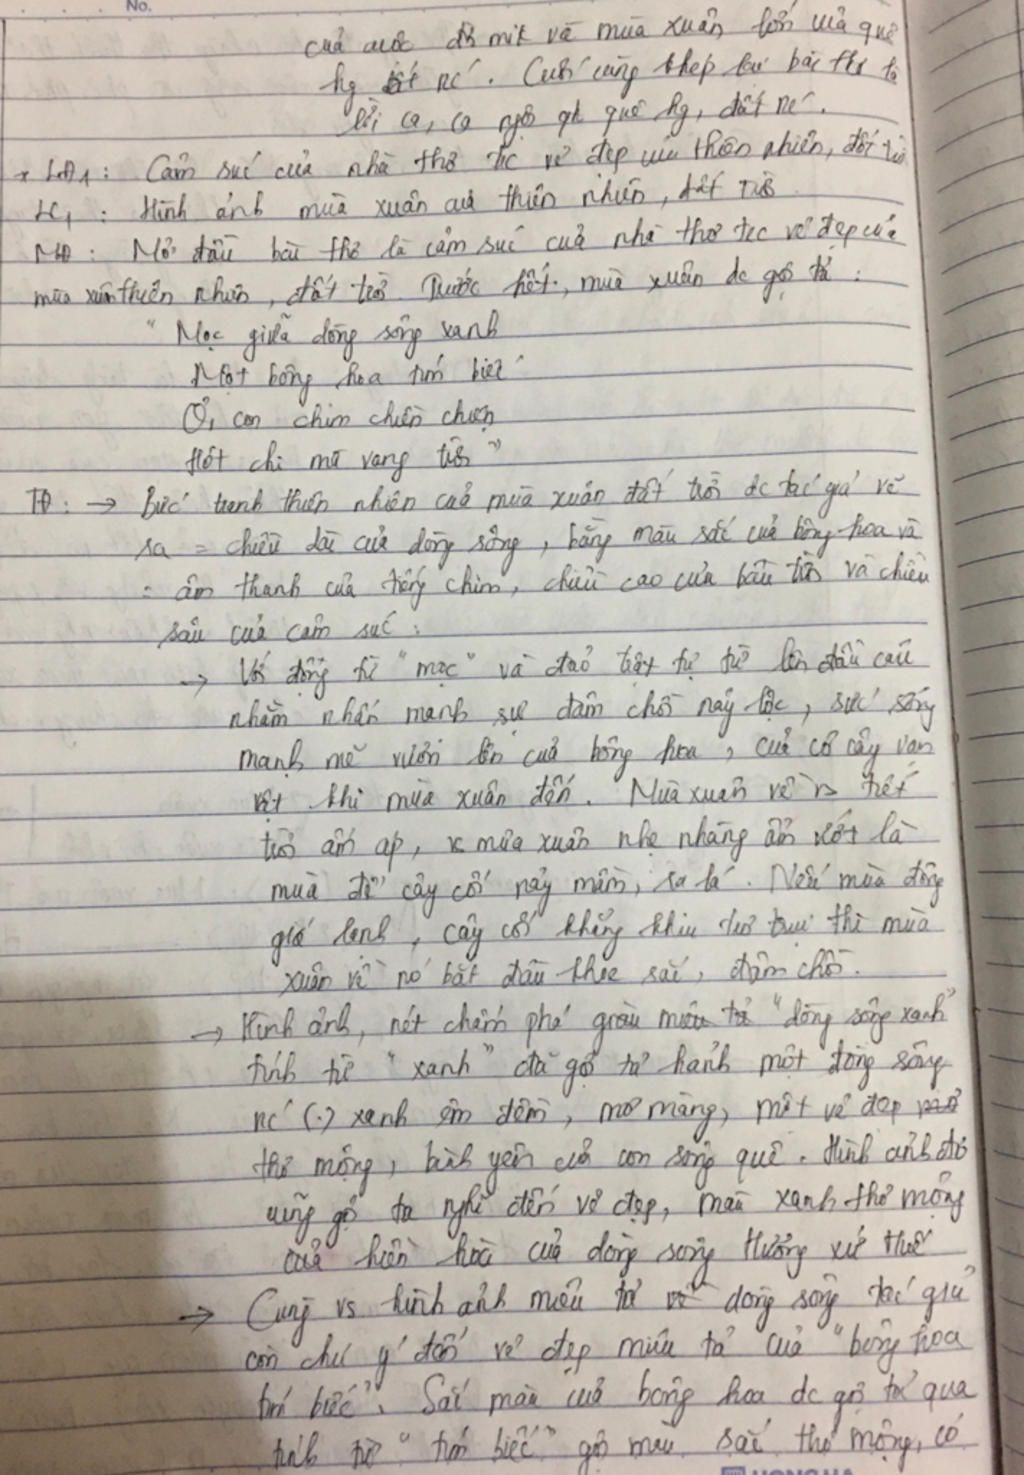 No.
của cuộc đ mik về mùa xuân lớn của quê
hg đất nc'. Cuối cùng khép lại bài thơ là
lời ca, ca ngợi quê hg, đất nc'.
* LĐ1: Cảm xúc của nhà thơ tc vẻ đẹp của thiên nhiên, đất trời
LC1 : Hình ảnh mùa xuân của thiên nhiên, đất trời
MĐ : Mở đầu bài thơ là cảm xúc của nhà thơ tc vẻ đẹp của
mùa xuân thiên nhiên, đất trời. Trước hết, mùa xuân dc gợi tả :
" Mọc giữa dòng sông xanh
Một bông hoa tím biếc
Ơi, con chim chiền chiện
Hót chi mà vang trời "
TĐ : → Bức tranh thiên nhiên của mùa xuân đất trời dc tác giả vẽ
ra = chiều dài của dòng sông, bằng màu sắc của bông hoa và
= âm thanh của tiếng chim, chiều cao của bầu trời và chiều
sâu của cảm xúc :
→ Với động từ "mọc" và đảo trật tự từ lên đầu câu
nhằm nhấn mạnh sự đâm chồi nảy lộc, sức sống
mạnh mẽ vươn lên của bông hoa, của cỏ cây vạn
vật khi mùa xuân đến. Mùa xuân về vs tiết
trời ấm áp, vs mưa xuân nhẹ nhàng ẩm ướt là
mùa để cây cối nảy mầm, ra lá. Nếu mùa đông
gió lạnh, cây cối khẳng khiu trơ trụi thì mùa
xuân về nó bắt đầu khoe sắc, đâm chồi.
→ Hình ảnh, nét chấm phá giàu miêu tả "dòng sông xanh"
tính từ "xanh" đã gợi tả hanh một dòng sông
nc' (.) xanh êm đềm, mơ màng, một vẻ đẹp
thơ mộng, bình yên của con sông quê. Hình ảnh đó
cũng gợi ta nghĩ đến vẻ đẹp, màu xanh thơ mộng
của hiền hoà của dòng sông Hương xứ Huế
→ Cùng vs hình ảnh miêu tả về dòng sông tác giả
còn chú ý đến vẻ đẹp miêu tả của "bông hoa
tím biếc". Sắc màu của bông hoa dc gợi tả qua
tính từ "tím biếc" gợi màu sắc thơ mộng, có
HONG HA